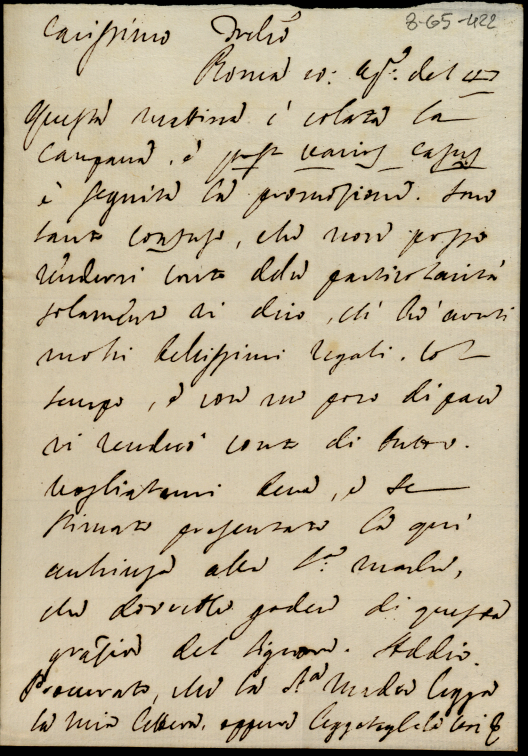 8-65-422
Carissimo Duclò
Roma 10: Ag.º del
Questa mattina è colata la
Campana, e post varios casus
è seguita la promozione. Sono
tanto confuso, che non posso
rendervi conto delle particolarità
solamente vi dico, ch' hò avuti
molti bellissimi regali. Col
tempo, e con un poco di pace
vi renderò conto di tutto.
Vogliatemi bene, e se
stimate presentate la quì
acchiusa alla S.ª Madre,
che dovrebbe godere di questa
grazia del Signore. Addio.
Procurate, che la S.ª Madre legga
la mia lettera, oppure leggetegliela voi